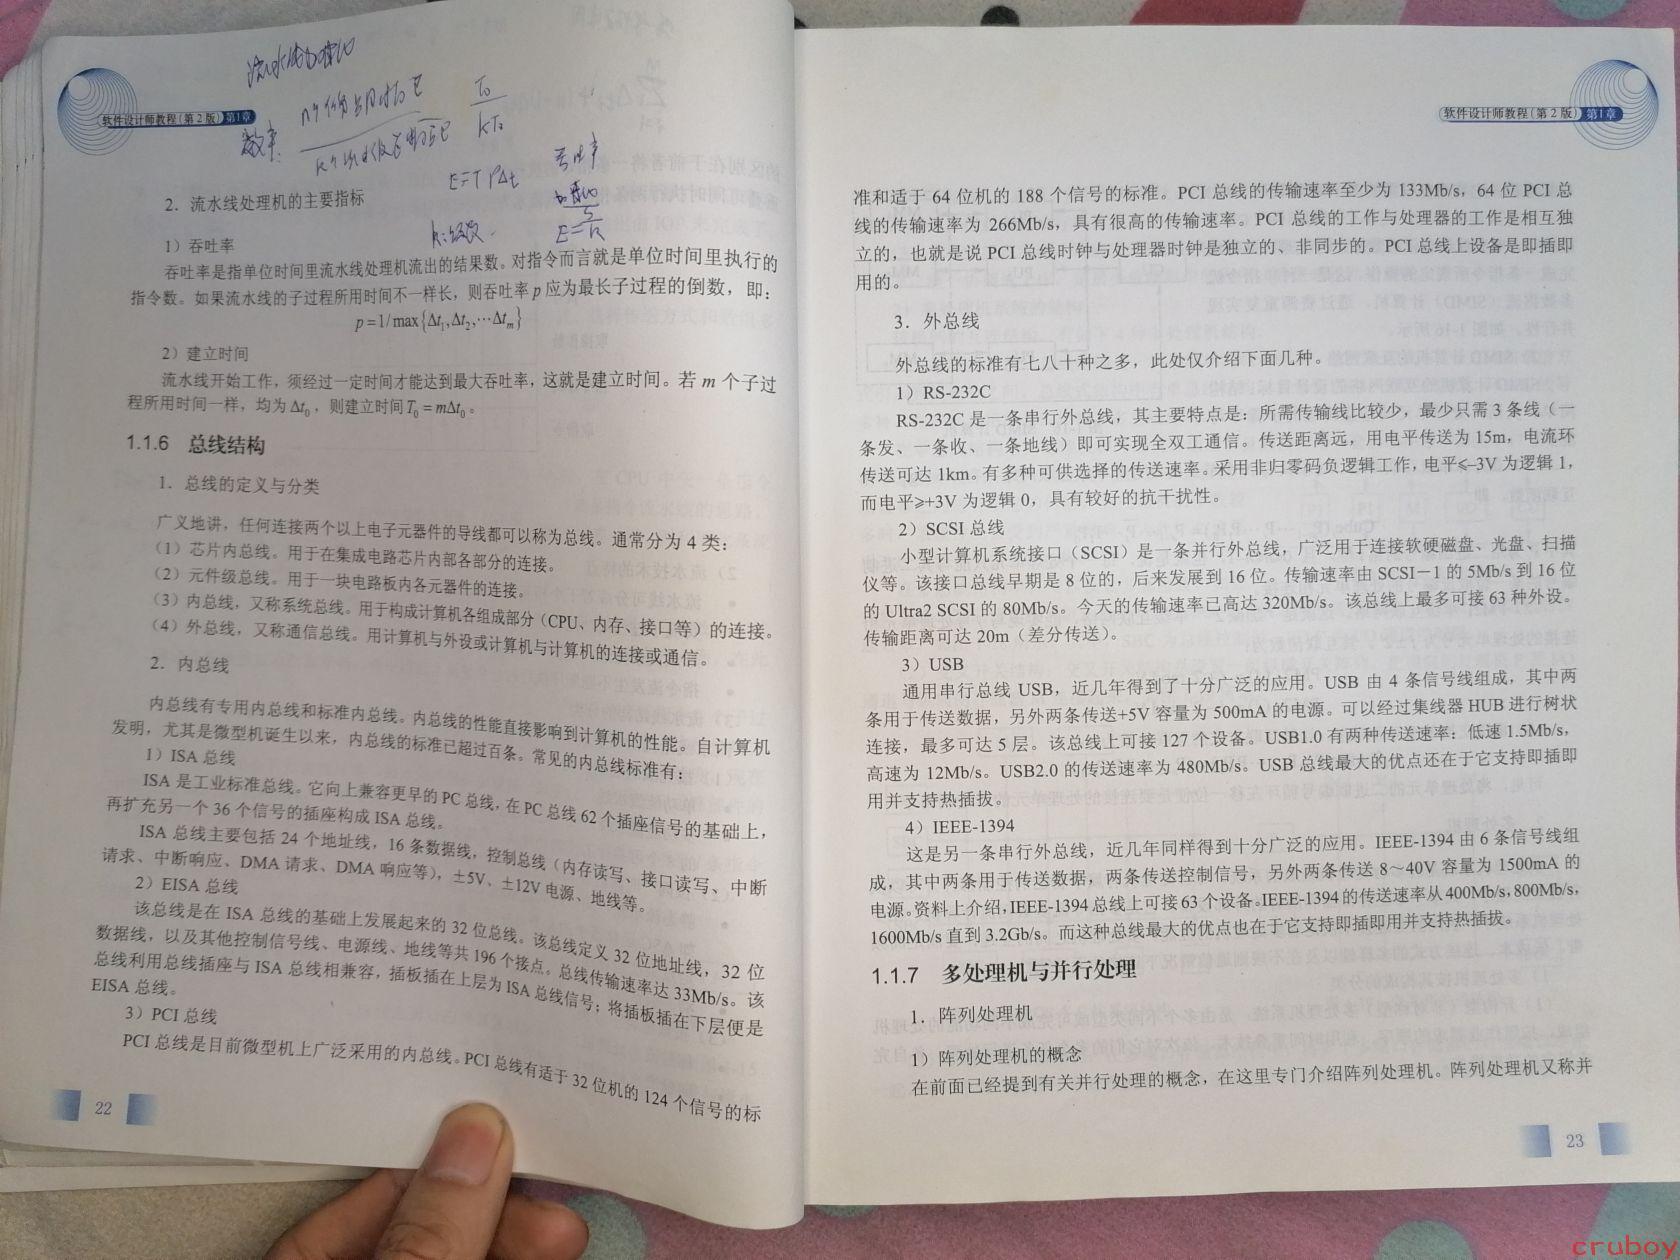 流水线
效率:
T₀
kT₀
吞吐率
软件设计师教程(第2版) 第1章
2．流水线处理机的主要指标
1）吞吐率
吞吐率是指单位时间里流水线处理机流出的结果数。对指令而言就是单位时间里执行的
指令数。如果流水线的子过程所用时间不一样长，则吞吐率 p 应为最长子过程的倒数，即：
p=1/max{Δt₁,Δt₂,⋯Δtₘ}
2）建立时间
流水线开始工作，须经过一定时间才能达到最大吞吐率，这就是建立时间。若 m 个子过
程所用时间一样，均为 Δt₀，则建立时间 T₀=mΔt₀。
1.1.6 总线结构
1．总线的定义与分类
广义地讲，任何连接两个以上电子元器件的导线都可以称为总线。通常分为 4 类：
（1）芯片内总线。用于在集成电路芯片内部各部分的连接。
（2）元件级总线。用于一块电路板内各元器件的连接。
（3）内总线，又称系统总线。用于构成计算机各组成部分（CPU、内存、接口等）的连接。
（4）外总线，又称通信总线。用计算机与外设或计算机与计算机的连接或通信。
2．内总线
内总线有专用内总线和标准内总线。内总线的性能直接影响到计算机的性能。自计算机
发明，尤其是微型机诞生以来，内总线的标准已超过百条。常见的内总线标准有：
1）ISA 总线
ISA 是工业标准总线。它向上兼容更早的 PC 总线，在 PC 总线 62 个插座信号的基础上，
再扩充另一个 36 个信号的插座构成 ISA 总线。
ISA 总线主要包括 24 个地址线，16 条数据线，控制总线（内存读写、接口读写、中断
请求、中断响应、DMA 请求、DMA 响应等），±5V、±12V 电源、地线等。
2）EISA 总线
该总线是在 ISA 总线的基础上发展起来的 32 位总线。该总线定义 32 位地址线，32 位
数据线，以及其他控制信号线、电源线、地线等共 196 个接点。总线传输速率达 33Mb/s。该
总线利用总线插座与 ISA 总线相兼容，插板插在上层为 ISA 总线信号；将插板插在下层便是
EISA 总线。
3）PCI 总线
PCI 总线是目前微型机上广泛采用的内总线。PCI 总线有适于 32 位机的 124 个信号的标
22
软件设计师教程(第2版) 第1章
准和适于 64 位机的 188 个信号的标准。PCI 总线的传输速率至少为 133Mb/s，64 位 PCI 总
线的传输速率为 266Mb/s，具有很高的传输速率。PCI 总线的工作与处理器的工作是相互独
立的，也就是说 PCI 总线时钟与处理器时钟是独立的、非同步的。PCI 总线上设备是即插即
用的。
3．外总线
外总线的标准有七八十种之多，此处仅介绍下面几种。
1）RS-232C
RS-232C 是一条串行外总线，其主要特点是：所需传输线比较少，最少只需 3 条线（一
条发、一条收、一条地线）即可实现全双工通信。传送距离远，用电平传送为 15m，电流环
传送可达 1km。有多种可供选择的传送速率。采用非归零码负逻辑工作，电平≤-3V 为逻辑 1，
而电平≥+3V 为逻辑 0，具有较好的抗干扰性。
2）SCSI 总线
小型计算机系统接口（SCSI）是一条并行外总线，广泛用于连接软硬磁盘、光盘、扫描
仪等。该接口总线早期是 8 位的，后来发展到 16 位。传输速率由 SCSI－1 的 5Mb/s 到 16 位
的 Ultra2 SCSI 的 80Mb/s。今天的传输速率已高达 320Mb/s。该总线上最多可接 63 种外设。
传输距离可达 20m（差分传送）。
3）USB
通用串行总线 USB，近几年得到了十分广泛的应用。USB 由 4 条信号线组成，其中两
条用于传送数据，另外两条传送+5V 容量为 500mA 的电源。可以经过集线器 HUB 进行树状
连接，最多可达 5 层。该总线上可接 127 个设备。USB1.0 有两种传送速率：低速 1.5Mb/s，
高速为 12Mb/s。USB2.0 的传送速率为 480Mb/s。USB 总线最大的优点还在于它支持即插即
用并支持热插拔。
4）IEEE-1394
这是另一条串行外总线，近几年同样得到十分广泛的应用。IEEE-1394 由 6 条信号线组
成，其中两条用于传送数据，两条传送控制信号，另外两条传送 8～40V 容量为 1500mA 的
电源。资料上介绍，IEEE-1394 总线上可接 63 个设备。IEEE-1394 的传送速率从 400Mb/s，800Mb/s，
1600Mb/s 直到 3.2Gb/s。而这种总线最大的优点也在于它支持即插即用并支持热插拔。
1.1.7 多处理机与并行处理
1．阵列处理机
1）阵列处理机的概念
在前面已经提到有关并行处理的概念，在这里专门介绍阵列处理机。阵列处理机又称并
23
cruboy